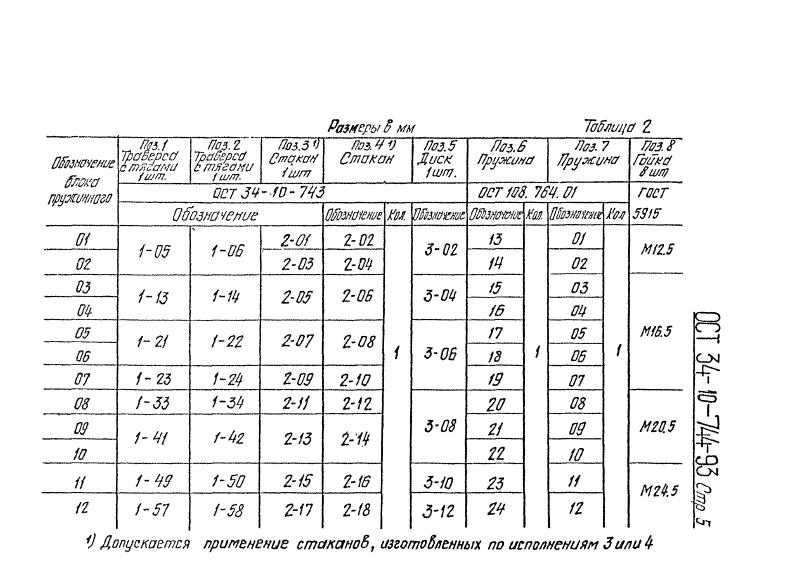 Размеры в мм Таблица 2
Обозначение блока пружинного | Поз.1 Траверса с тягами 1 шт. | Поз.2 Траверса с тягами 1 шт. | Поз.3 1) Стакан 1 шт | Поз.4 1) Стакан | Поз.5 Диск 1 шт. | Поз.6 Пружина | Поз.7 Пружина | Поз.8 Гайка 8 шт
ОСТ 34-10-743 | ОСТ 108.764.01 | ГОСТ 5915
Обозначение | Обозначение | Кол. | Обозначение | Обозначение | Кол. | Обозначение | Кол
01 | 1-05 | 1-06 | 2-01 | 2-02 | 1 | 3-02 | 13 | 1 | 01 | 1 | М12,5
02 | 2-03 | 2-04 | 14 | 02
03 | 1-13 | 1-14 | 2-05 | 2-06 | 3-04 | 15 | 03 | М16.5
04 | 16 | 04
05 | 1-21 | 1-22 | 2-07 | 2-08 | 3-06 | 17 | 05
06 | 18 | 06
07 | 1-23 | 1-24 | 2-09 | 2-10 | 19 | 07
08 | 1-33 | 1-34 | 2-11 | 2-12 | 3-08 | 20 | 08 | М20,5
09 | 1-41 | 1-42 | 2-13 | 2-14 | 21 | 09
10 | 22 | 10
11 | 1-49 | 1-50 | 2-15 | 2-16 | 3-10 | 23 | 11 | М24.5
12 | 1-57 | 1-58 | 2-17 | 2-18 | 3-12 | 24 | 12
1) Допускается применение стаканов, изготовленных по исполнениям 3 или 4
ОСТ 34-10-744-93 Стр. 5